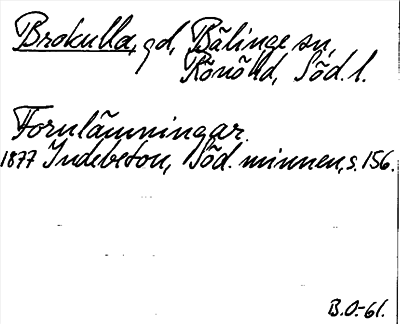 Brokulla, gd, Bälinge sn,
Rönö hd, Söd. l.
Fornlämningar.
1877 Indebetou, Söd. minnen, s. 156.
B.O.-61.